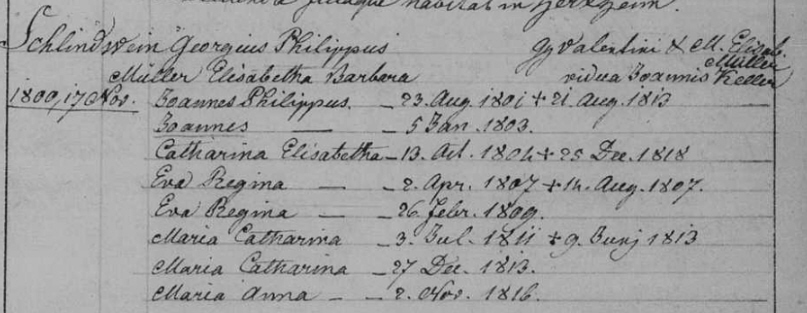 habitat in Herxheim.
Schlindwein Georgius Philippus Valentini & M. Elisab.
Müller Elisabetha Barbara vidua Joannis Keller Müller
1800, 17 Nov. Joannes Philippus. – 23. Aug. 1801 + 21. Aug. 1813
Joannes — – 5 Jan. 1803.
Catharina Elisabetha – 13. Oct. 1804 + 25 Dec. 1818
Eva Regina — – 2. Apr. 1807 + 14. Aug. 1807.
Eva Regina — – 26. Febr. 1809.
Maria Catharina – 3. Jul. 1811 + 9. Junj 1813
Maria Catharina – 27 Dec. 1813.
Maria Anna – – 2. Nov. 1816.